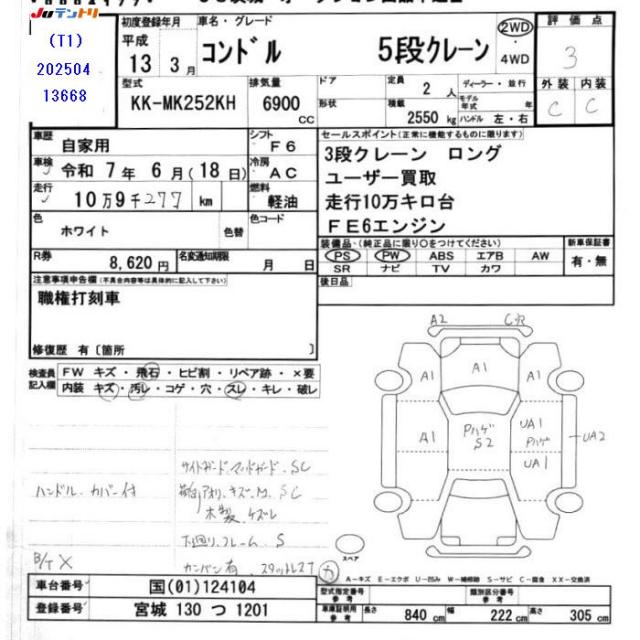 JUテントリ
(T1)
202504
13668
初度登録年月
平成
13 3月
車名・グレード
コンドル 5段クレーン
2WD
・4WD
評価点
3
外装 内装
C C
型式
KK-MK252KH
排気量
6900
CC
ドア
形状
定員
2 人
積載
2550 kg
ディーラー・並行
モデル年式 年
ハンドル 左・右
車歴
自家用
シフト
F6
車検
令和 7年 6月(18日)
冷房
AC
走行
10万9千277 km
燃料
軽油
色
ホワイト
色替
色コード
R券
8,620円
名変通知期限
月 日
セールスポイント(正常に機能するものに限ります)
3段クレーン ロング
ユーザー買取
走行10万キロ台
FE6エンジン
装備品(純正品に限り〇をつけてください)
PS PW ABS エアB AW
SR ナビ TV カワ
新車保証書
有・無
後日品
注意事項申告欄(不具合内容等は具体的に記入して下さい)
職権打刻車
修復歴 有〔箇所 〕
検査員記入欄
FW キズ・飛石・ヒビ割・リペア跡・×要
内装 キズ・汚レ・コゲ・穴・スレ・キレ・破レ
A2 C穴
A1 A1 A1
A1 Pハゲ S2 UA1 Pハゲ UA1 UA2
サイドガード、マッドガード SC
ハンドルカバー付
荷台アオリ、キズM、SC
木製 ケズレ
下廻り、フレーム S
B/T X
カンバン有 スタットレス7
スペア
A-キズ E-エクボ U-凹み W-補修跡 S-サビ C-腐食 XX-交換済
車台番号
国(01)124104
登録番号
宮城 130 つ 1201
型式指定番号
参考
類別区分番号
参考
車庫証明用
参考
長さ 840 cm 幅 222 cm 高さ 305 cm